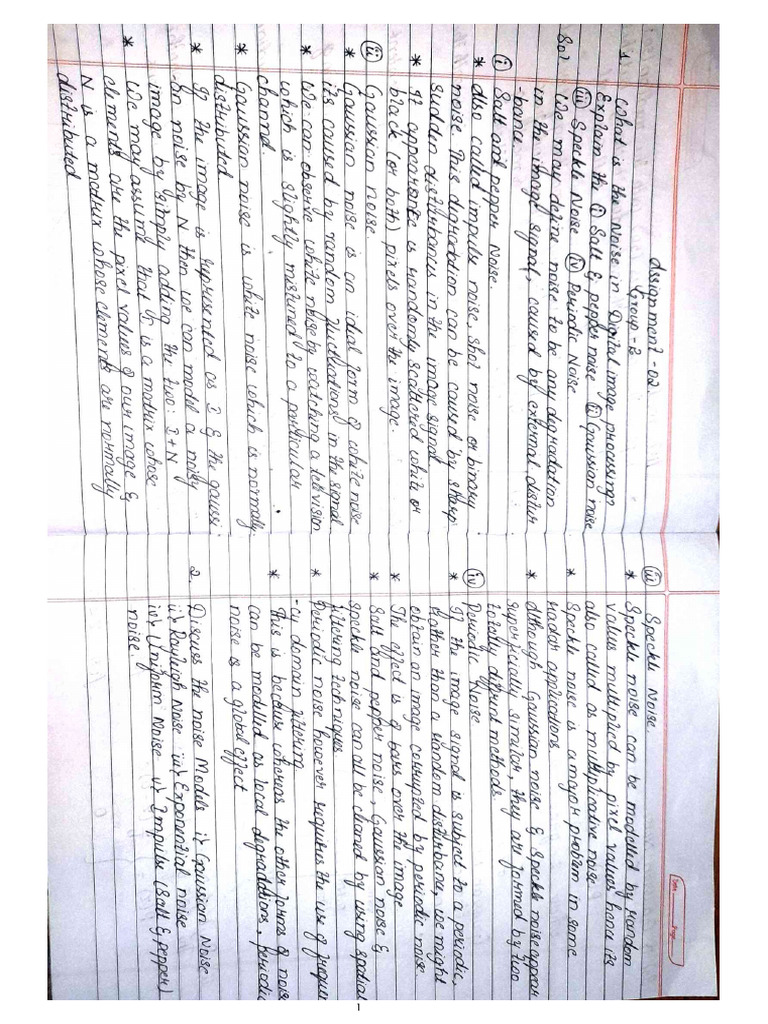 Assignment - 02
Group - B
1. What is the Noise in Digital image processing?
Explain the (i) Salt & pepper noise (ii) Gaussian noise
(iii) Speckle Noise (iv) Periodic Noise
Sol We may define noise to be any degradation
in the image signal, caused by external distur
-bance.
(i) Salt and pepper Noise.
* also called impulse noise, shot noise or binary
noise. This degradation can be caused by sharp
sudden disturbances in the image signal
* It appearance is randomly scattered white or
black (or both) pixels over the image.
(ii) Gaussian noise
* Gaussian noise is an ideal form of white noise
its caused by random fluctuations in the signal
* We can observe white noise by watching a television
which is slightly mistuned to a particular
channel.
* Gaussian noise is white noise which is normally
distributed
* If the image is represented as I & the gaussi
-an noise by N then we can model a noisy
image by simply adding the two: I + N
* We may assume that I is a matrix whose
elements are the pixel values of our image &
N is a matrix whose elements are normally
distributed
Date Page
(iii) Speckle Noise
* Speckle noise can be modeled by random
values multiplied by pixel values hence its
also called as multiplicative noise
* Speckle noise is a major problem in some
radar applications
* Although Gaussian noise & Speckle noise appear
superficially similar, they are formed by two
totally different methods.
(iv) Periodic Noise
* If the image signal is subject to a periodic,
rather than a random disturbance, we might
obtain an image corrupted by periodic noise
* The effect is of bars over the image
* Salt and pepper noise, Gaussian noise &
Speckle noise can all be cleaned by using spatial
filtering techniques.
* Periodic noise however requires the use of frequen
-cy domain filtering
* This is because whereas the other forms of noise
can be modelled as local degradations, periodic
noise is a global effect
2. Discuss the noise Models i) Gaussian Noise
ii) Rayleigh Noise iii) Exponential noise
iv) Uniform Noise v) Impulse (Salt & pepper)
noise.
1